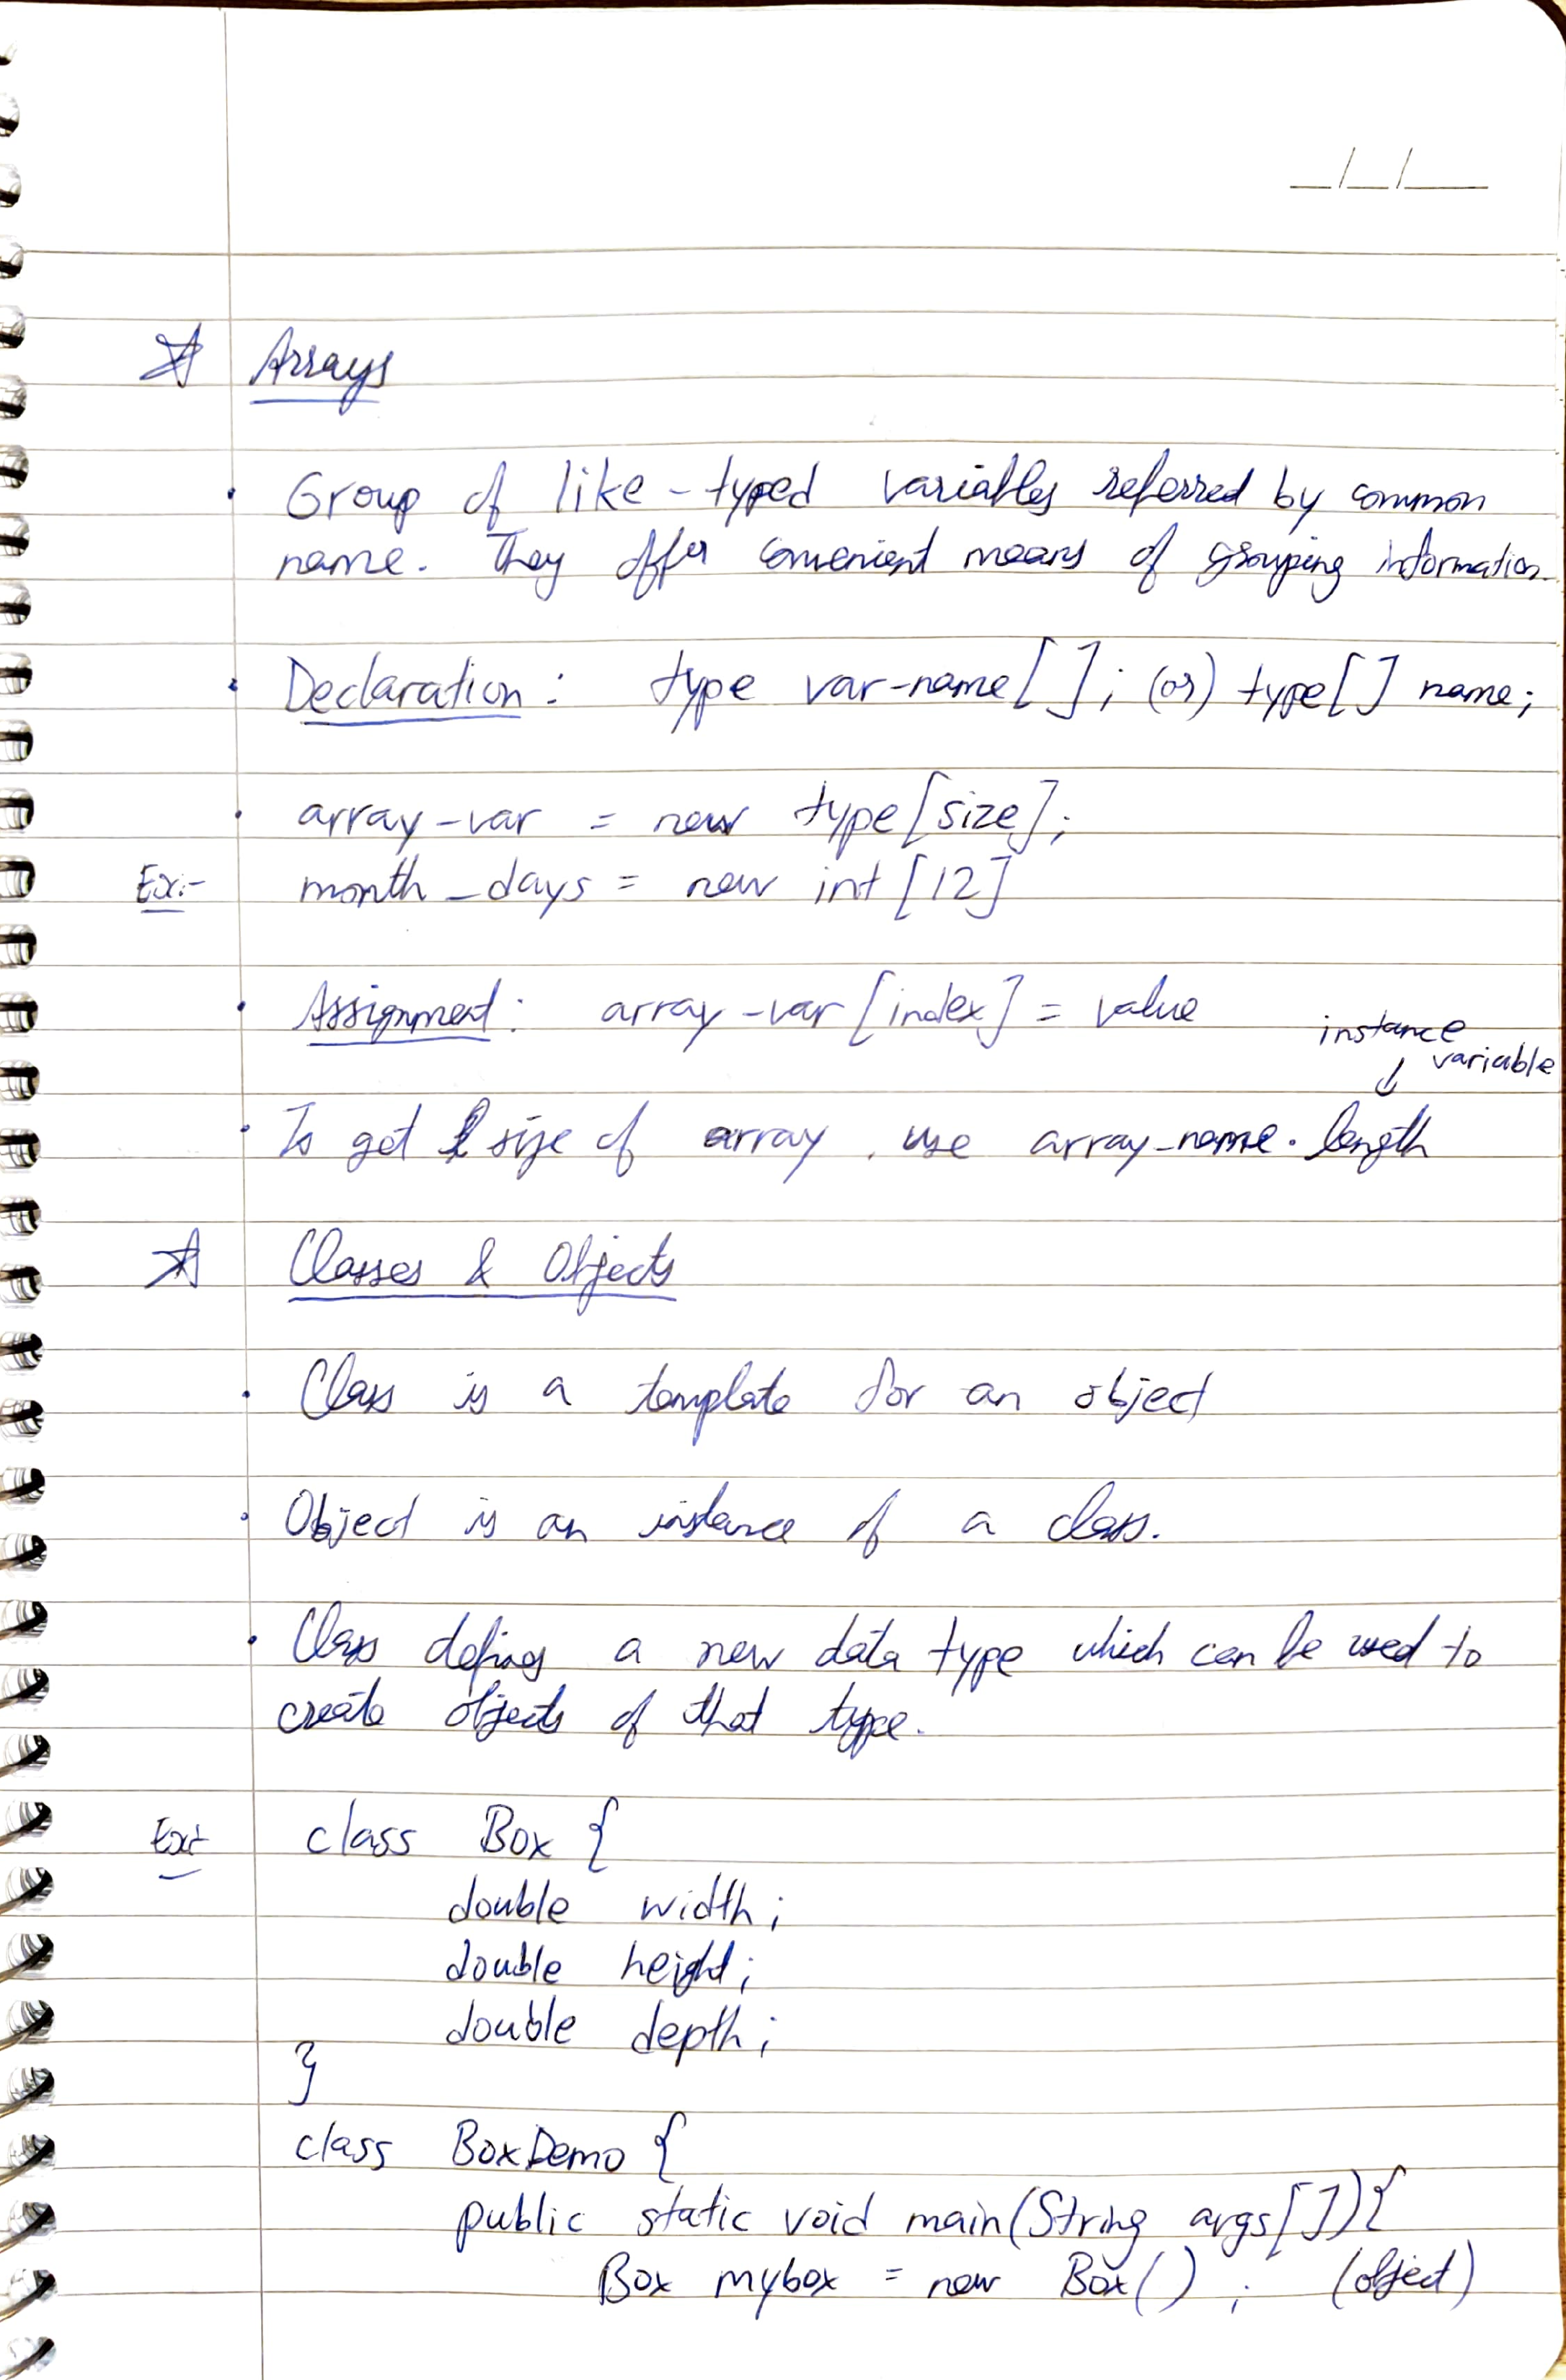 Arrays
• Group of like-typed variables referred by common
name. They offer convenient means of grouping information.
• Declaration: type var-name[]; (or) type[] name;
• array-var = new type[size];
Ex:- month_days = new int[12]
• Assignment: array-var[index] = value
instance
variable
• To get size of array, use array-name.length
Classes & Objects
• Class is a template for an object
• Object is an instance of a class.
• Class defines a new data type which can be used to
create objects of that type.
Ex:- class Box {
double width;
double height;
double depth;
}
class BoxDemo {
public static void main(String args[]){
Box mybox = new Box(); (object)